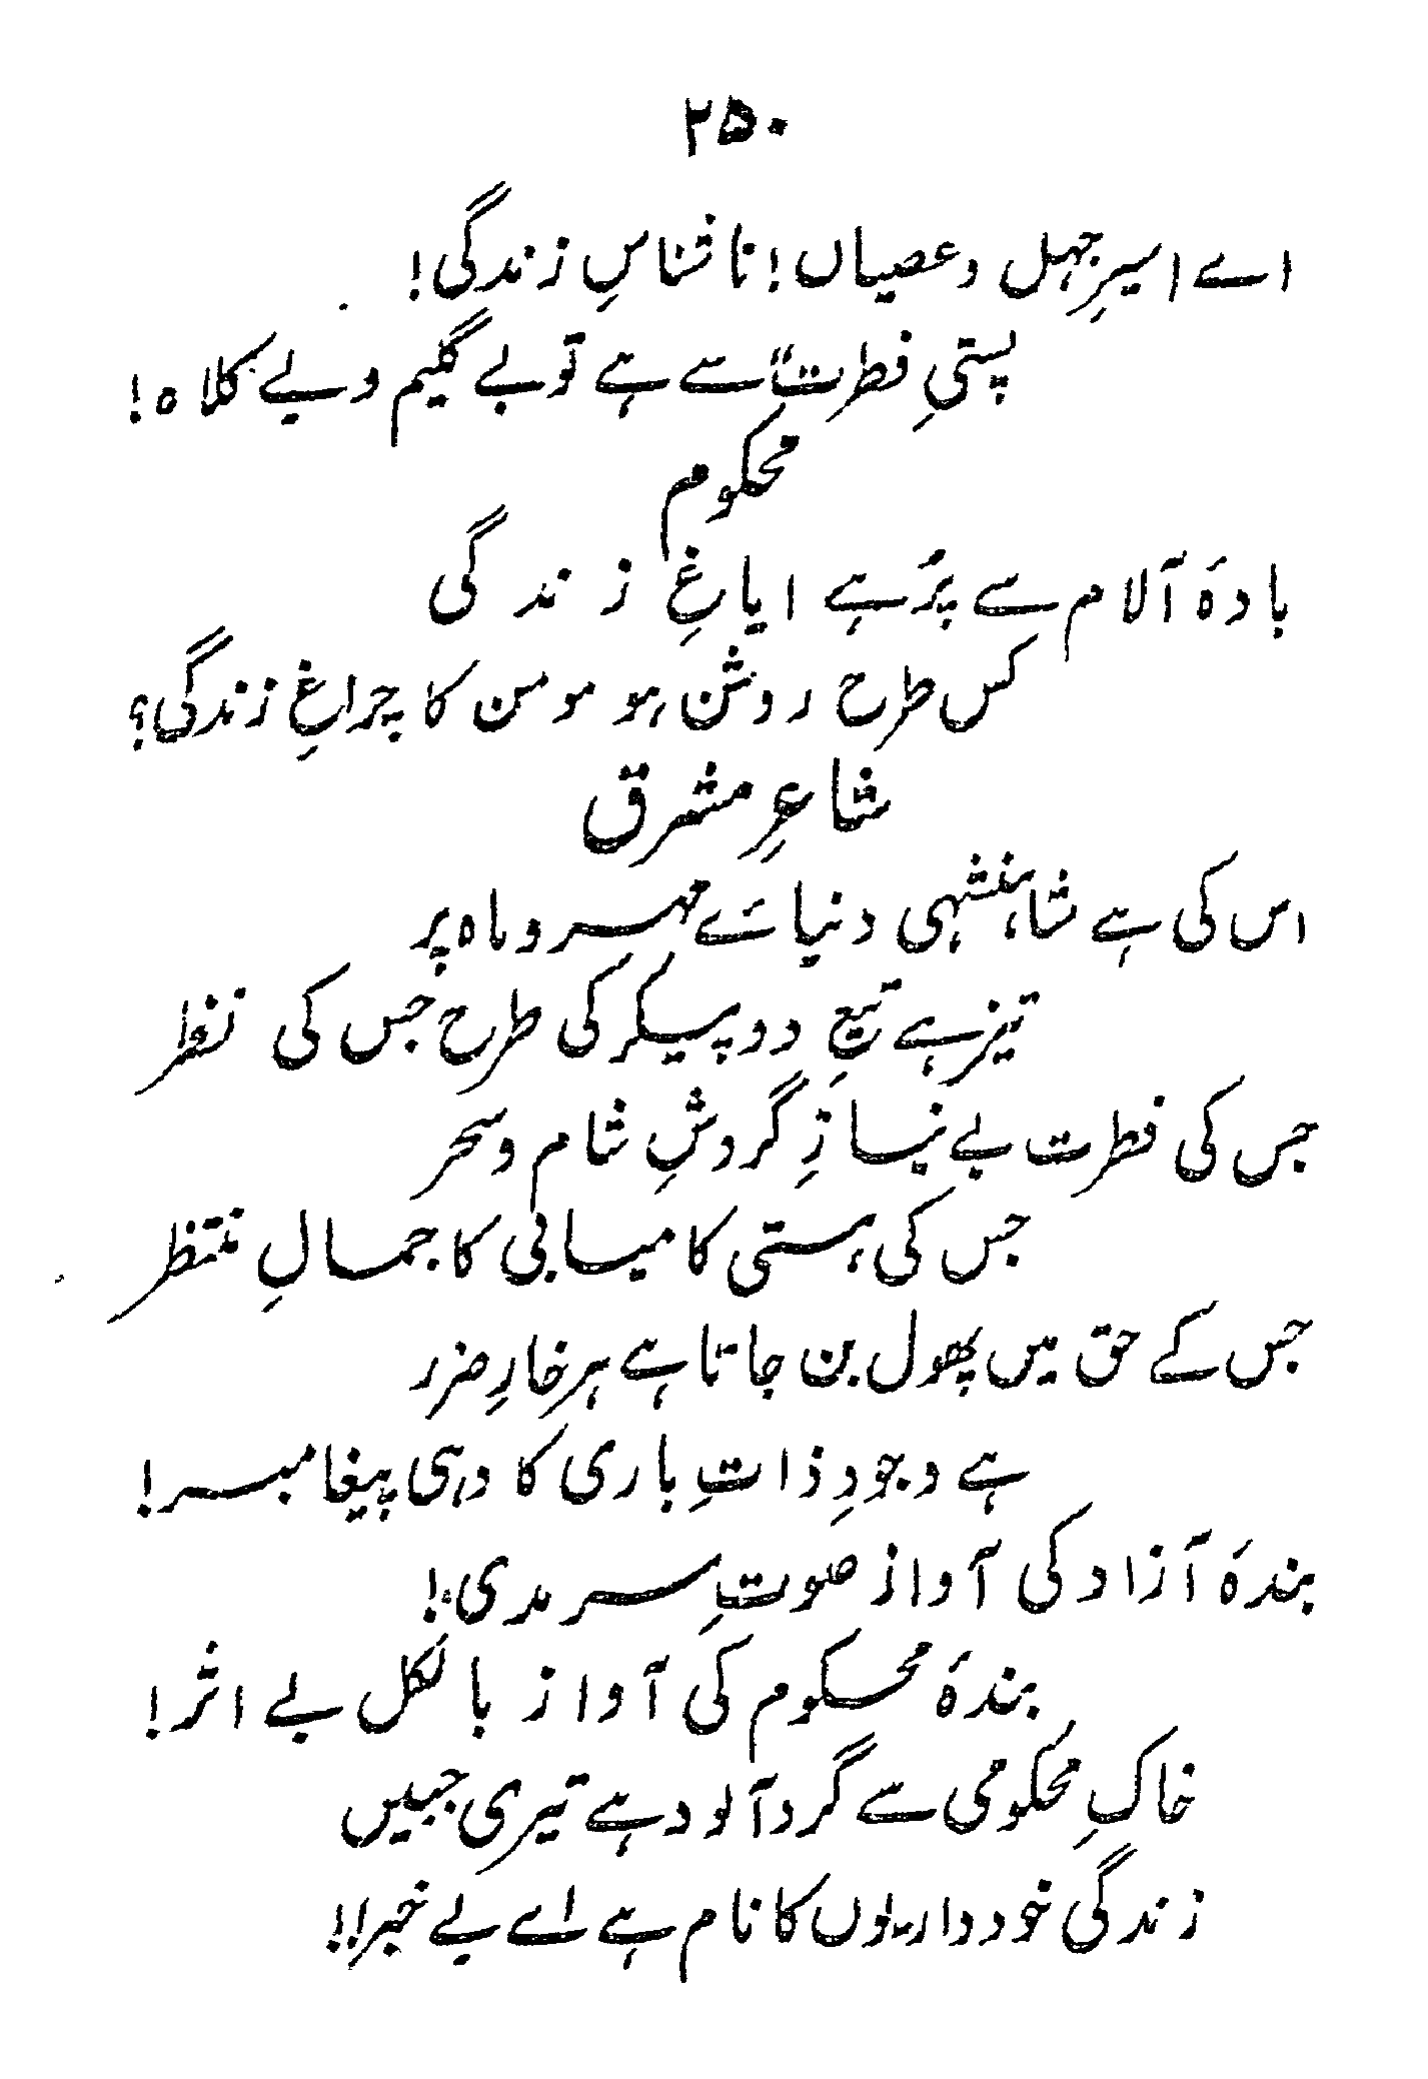 ۲۵۰
اے اسیرِ جہل و عصیاں! نا شناسِ زندگی!
پستیِ فطرت سے ہے تو بے گلیم و بے کلاہ!
محکوم
بادۂ آلام سے پُر ہے ایاغِ زندگی
کس طرح روشن ہو مومن کا چراغِ زندگی؟
شاعرِ مشرق
اس کی ہے شاہنشہی دنیائے مہر و ماہ پر
تیز ہے تیغِ دو پیکر کی طرح جس کی نظر
جس کی فطرت بے نیازِ گردشِ شام و سحر
جس کی ہستی کامیابی کا جمالِ منتظر
جس کے حق میں پھول بن جاتا ہے ہر خارِ ضرر
ہے وجودِ ذاتِ باری کا وہی پیغامبر!
بندۂ آزاد کی آواز صوتِ سرمدی!
بندۂ محکوم کی آواز بالکل بے اثر!
خاکِ محکومی سے گرد آلود ہے تیری جبیں
زندگی خودداریوں کا نام ہے اے بے خبر!!